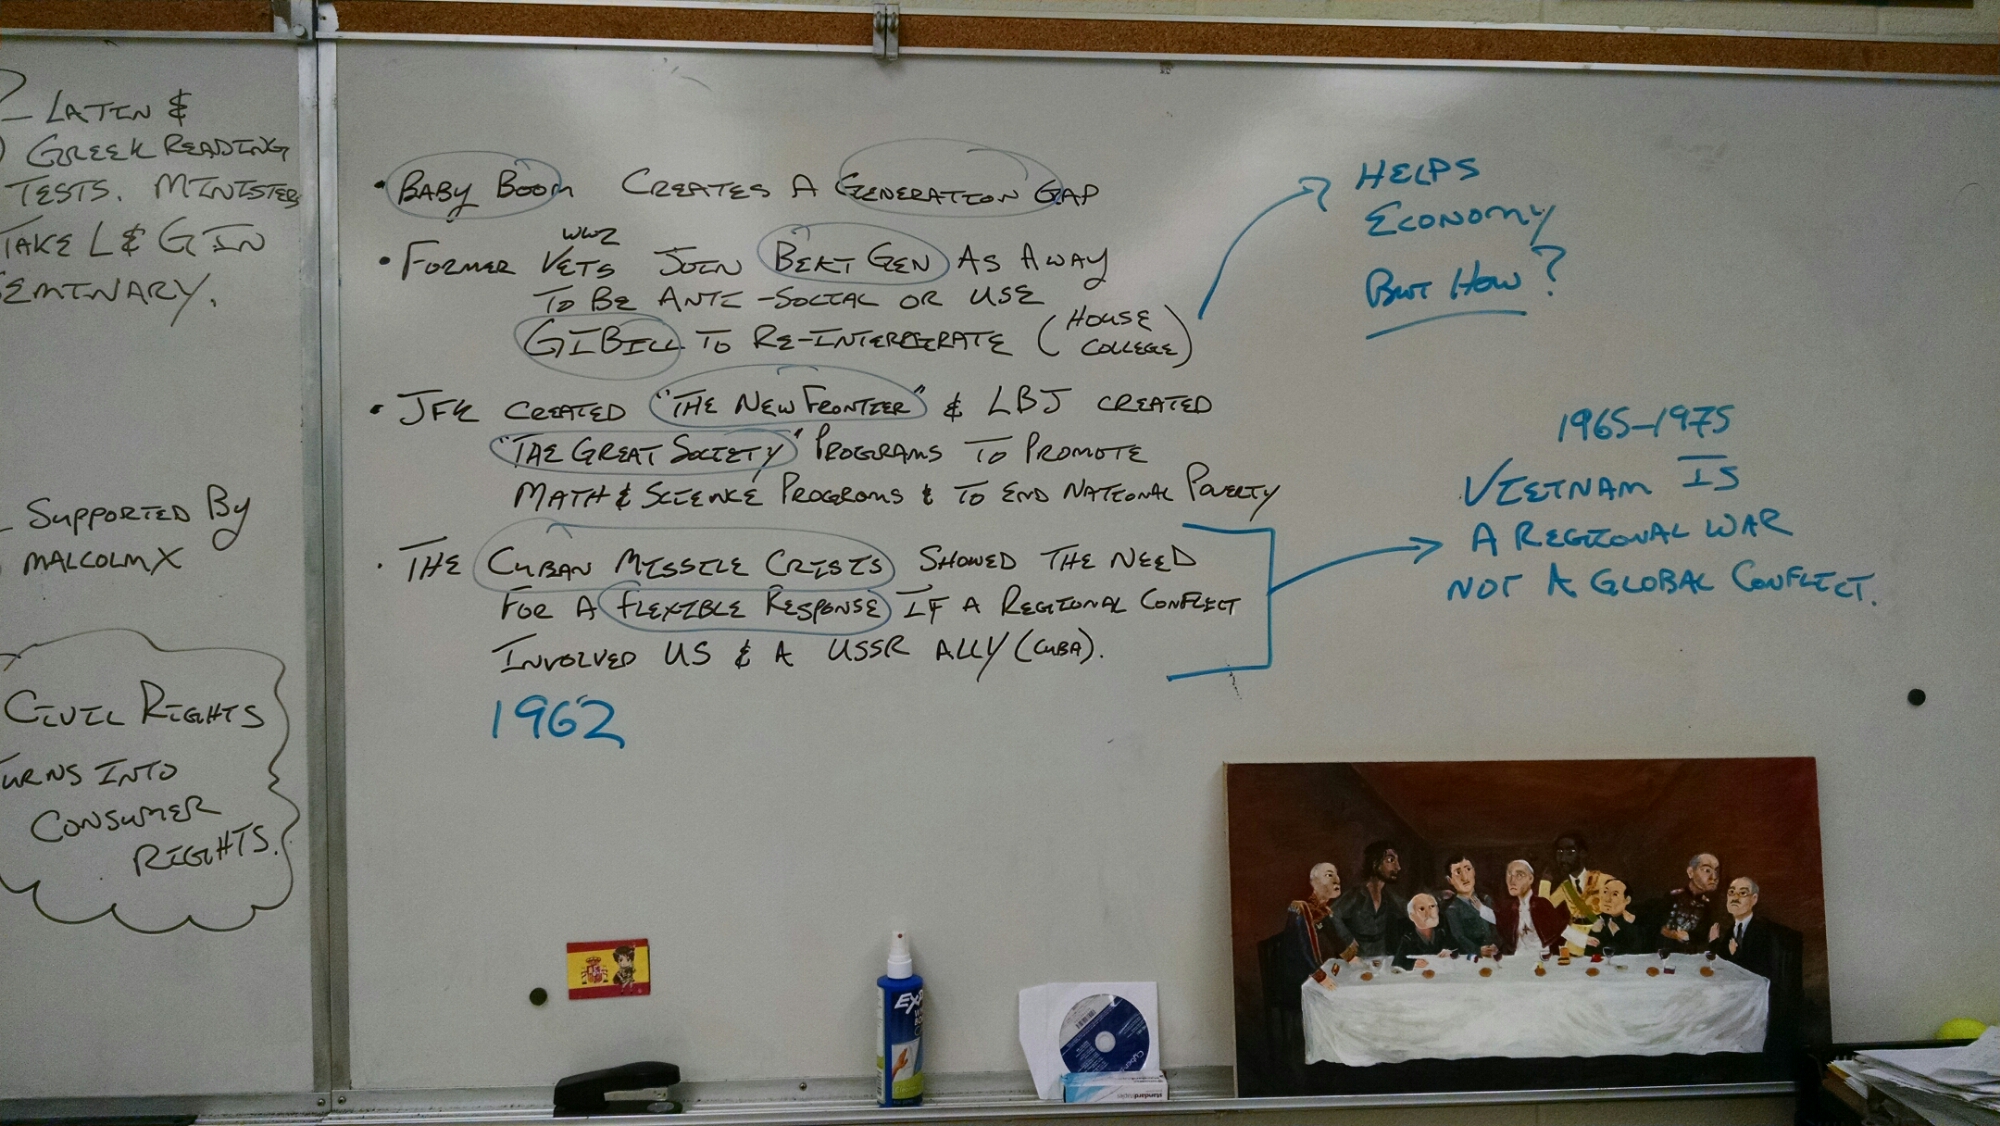 LATIN &
GREEK READING
TESTS. MINISTERS
TAKE L & G IN
SEMINARY.
SUPPORTED BY
MALCOLM X
CIVIL RIGHTS
TURNS INTO
CONSUMER
RIGHTS.
• BABY BOOM CREATES A GENERATION GAP
WW2
• FORMER VETS JOIN BEAT GEN AS AWAY
TO BE ANTI-SOCIAL OR USE
GI BILL TO RE-INTERGERATE (HOUSE
COLLEGE)
• JFK CREATED "THE NEW FRONTIER" & LBJ CREATED
"THE GREAT SOCIETY" PROGRAMS TO PROMOTE
MATH & SCIENCE PROGRAMS & TO END NATIONAL POVERTY
• THE CUBAN MISSILE CRISIS SHOWED THE NEED
FOR A FLEXIBLE RESPONSE IF A REGIONAL CONFLICT
INVOLVED US & A USSR ALLY (CUBA).
1962
HELPS
ECONOMY
BUT HOW?
1965-1975
VIETNAM IS
A REGIONAL WAR
NOT A GLOBAL CONFLICT.